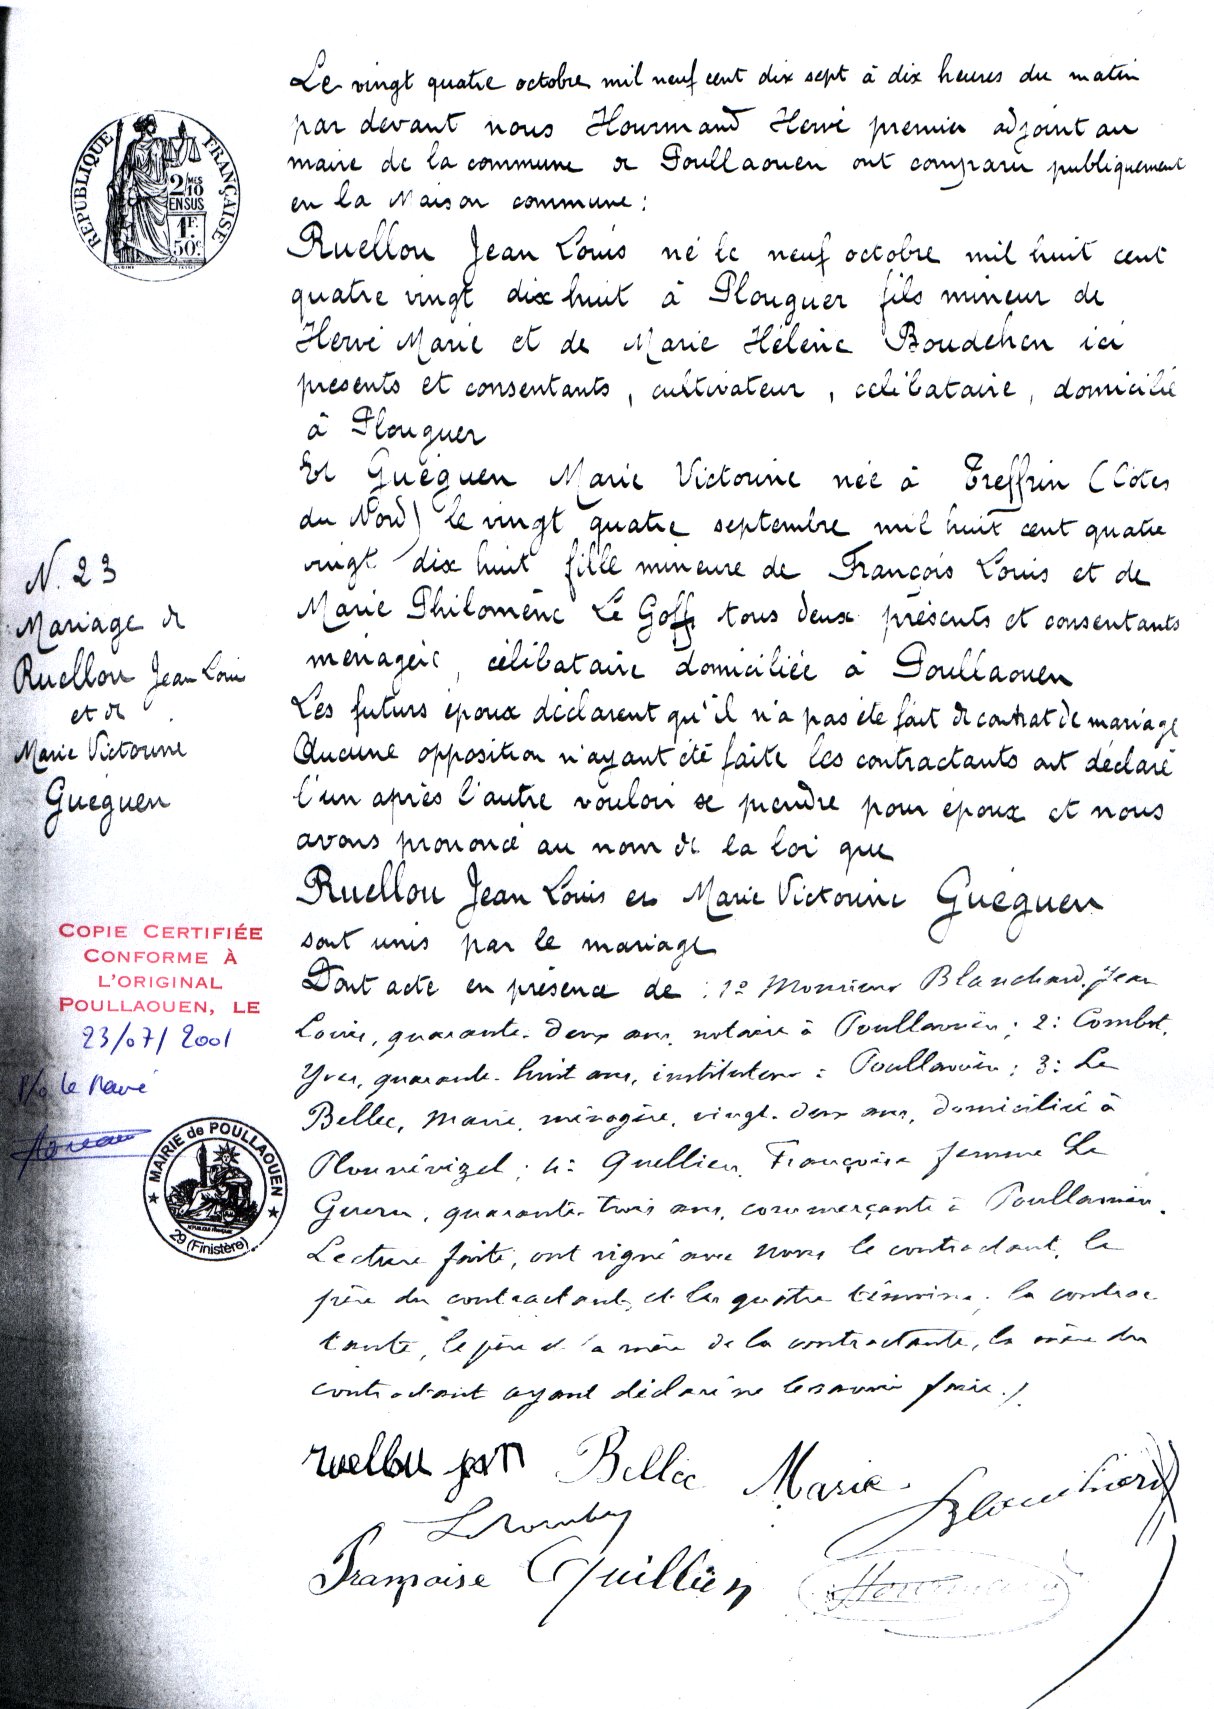 Le vingt quatre octobre mil neuf cent dix sept à dix heures du matin
par devant nous Hourmand Hervé premier adjoint au
maire de la commune de Poullaouen ont comparu publiquement
en la Maison commune :
Ruellou Jean Louis né le neuf octobre mil huit cent
quatre vingt dix huit à Plouguer fils mineur de
Hervé Marie et de Marie Hélène Boudehen ici
présents et consentants, cultivateur, célibataire, domicilié
à Plouguer
Et Guéguen Marie Victorine née à Treffrin (Côtes
du Nord) le vingt quatre septembre mil huit cent quatre
vingt dix huit fille mineure de François Louis et de
Marie Philomène Le Goff tous deux présents et consentants
ménagère, célibataire domiciliée à Poullaouen
Les futurs époux déclarent qu'il n'a pas été fait de contrat de mariage
Aucune opposition n'ayant été faite les contractants ont déclaré
l'un après l'autre vouloir se prendre pour époux et nous
avons prononcé au nom de la loi que
Ruellou Jean Louis et Marie Victorine Guéguen
sont unis par le mariage
Dont acte en présence de : 1º Monsieur Blanchard, Jean
Louis, quarante-deux ans, notaire à Poullaouën ; 2: Combot,
Yves, quarante-huit ans, instituteur à Poullaouën ; 3: Le
Bellec, Marie, ménagère, vingt-deux ans, domiciliée à
Plounévézel ; 4: Quellien, Françoise femme Le
Guern, quarante-trois ans, commerçante à Poullaouën.
Lecture faite, ont signé avec nous le contractant, le
père du contractant, et les quatre témoins, la contrac
tante, le père et la mère de la contractante, la mère du
contractant ayant déclaré ne le savoir faire ./.
ruellou jean Bellec Marie
Françoise Quillien
RÉPUBLIQUE FRANÇAISE
2/10 MES
EN SUS
1F.
50c.
N. 23
Mariage de
Ruellou Jean Louis
et de
Marie Victorine
Guéguen
COPIE CERTIFIÉE
CONFORME À
L'ORIGINAL
POULLAOUEN, LE
23/07/2001
P/o le Maire
MAIRIE de POULLAOUEN
29 (Finistère)